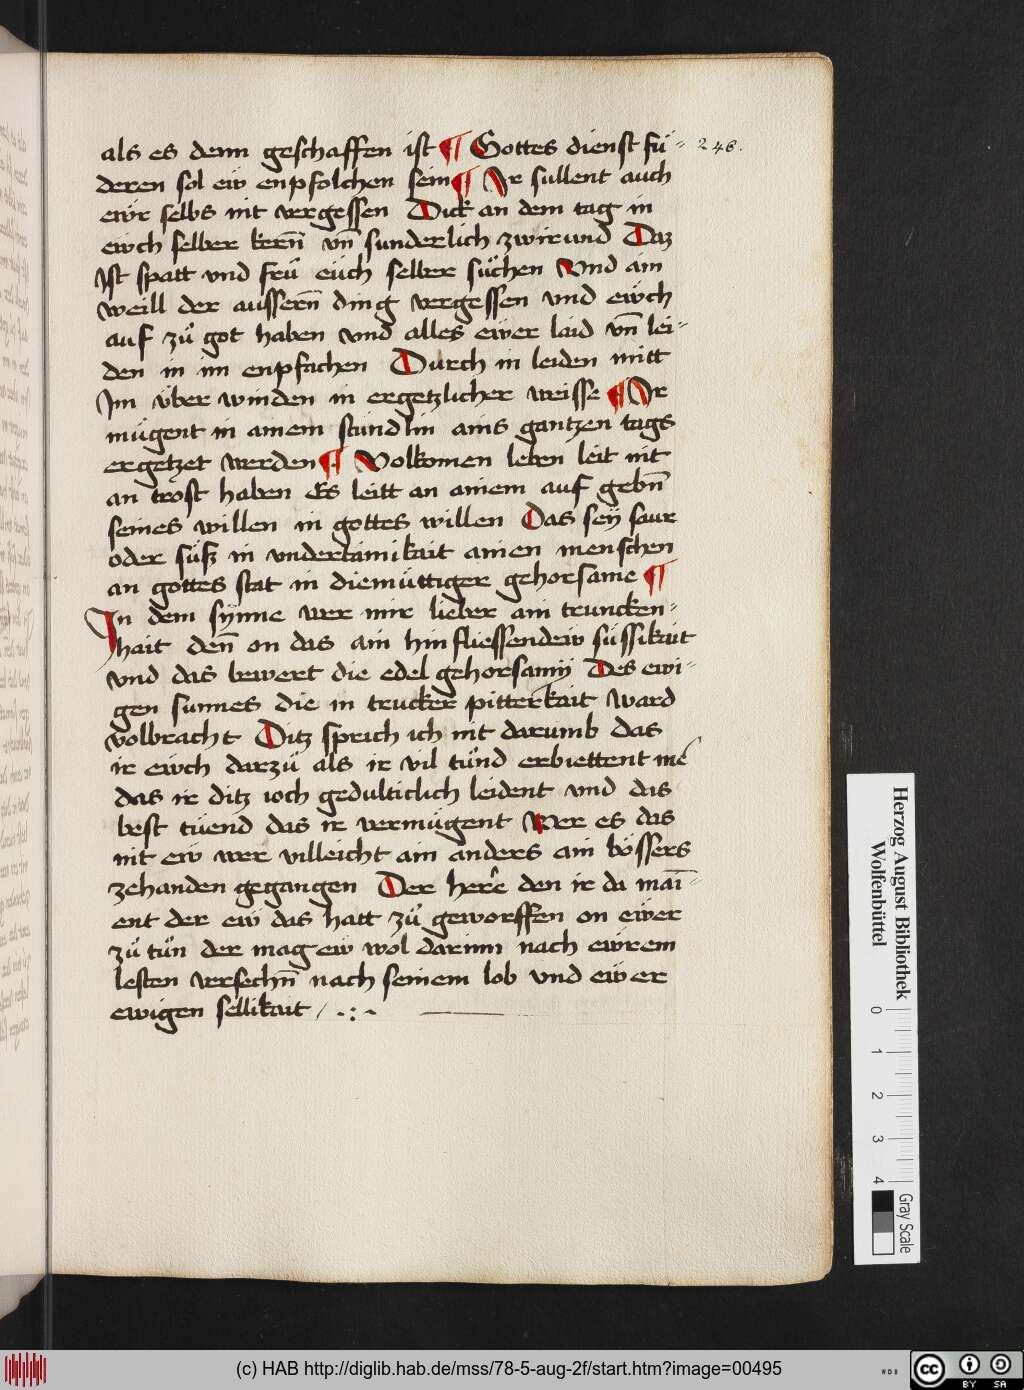 als es denn geschaffen ist ¶ Gottes dienst fü- 248.
deren sol ew enpfolchen sein ¶ Ir sullent auch
ewr selbs nit vergessen Dick an dem tag in
ewch selber kern̄ vn̄ sunderlich zwirund Daz
Ist spatt vnd frů euch selber sůchen Vnd ain
weill der aussern̄ ding vergessen vnd ewch
auf zů got haben vnd alles ewer laid vn̄ lei-
den in im enpfachen Durch in leiden mitt
Im über winden in ergetzlicher weisse ¶ Ir
mügent in ainem stündlin ains gantzen tags
ergetzet werden ¶ Volkomen leben leit nit
an tröst haben Es leitt an ainem auf gebn̄
seines willen in gottes willen Das sey saur
oder süß in vndertämikait ainen menschen
an gottes stat in diemüttiger gehorsame ¶
In dem synne wer mir lieber ain truncken-
hait den̄ on das ain hin fliessendew süssikait
vnd das bewert die edel gehorsamy Des ewi-
gen sunnes die in trucker pitterkait ward
volbracht Ditz sprich ich nit darumb das
ir ewch darzů als ir vil tůnd erbiettent me
das ir ditz ioch gedulticlich leident vnd das
best tüend das ir vermügent Wer es das
nit ew wer villeicht ain anders ain bössers
zehanden gegangen Der here den ir da main̄-
ent der ew das hatt zů geworffen on ewer
zů tůn der mag ew wol darinn nach ewrem
lesten versechn̄ nach seinem lob vnd ewer
ewigen sellikait / .:.
Herzog August Bibliothek
Wolfenbüttel
0 1 2 3 4
Gray Scale
(c) HAB http://diglib.hab.de/mss/78-5-aug-2f/start.htm?image=00495
WDB
cc BY SA